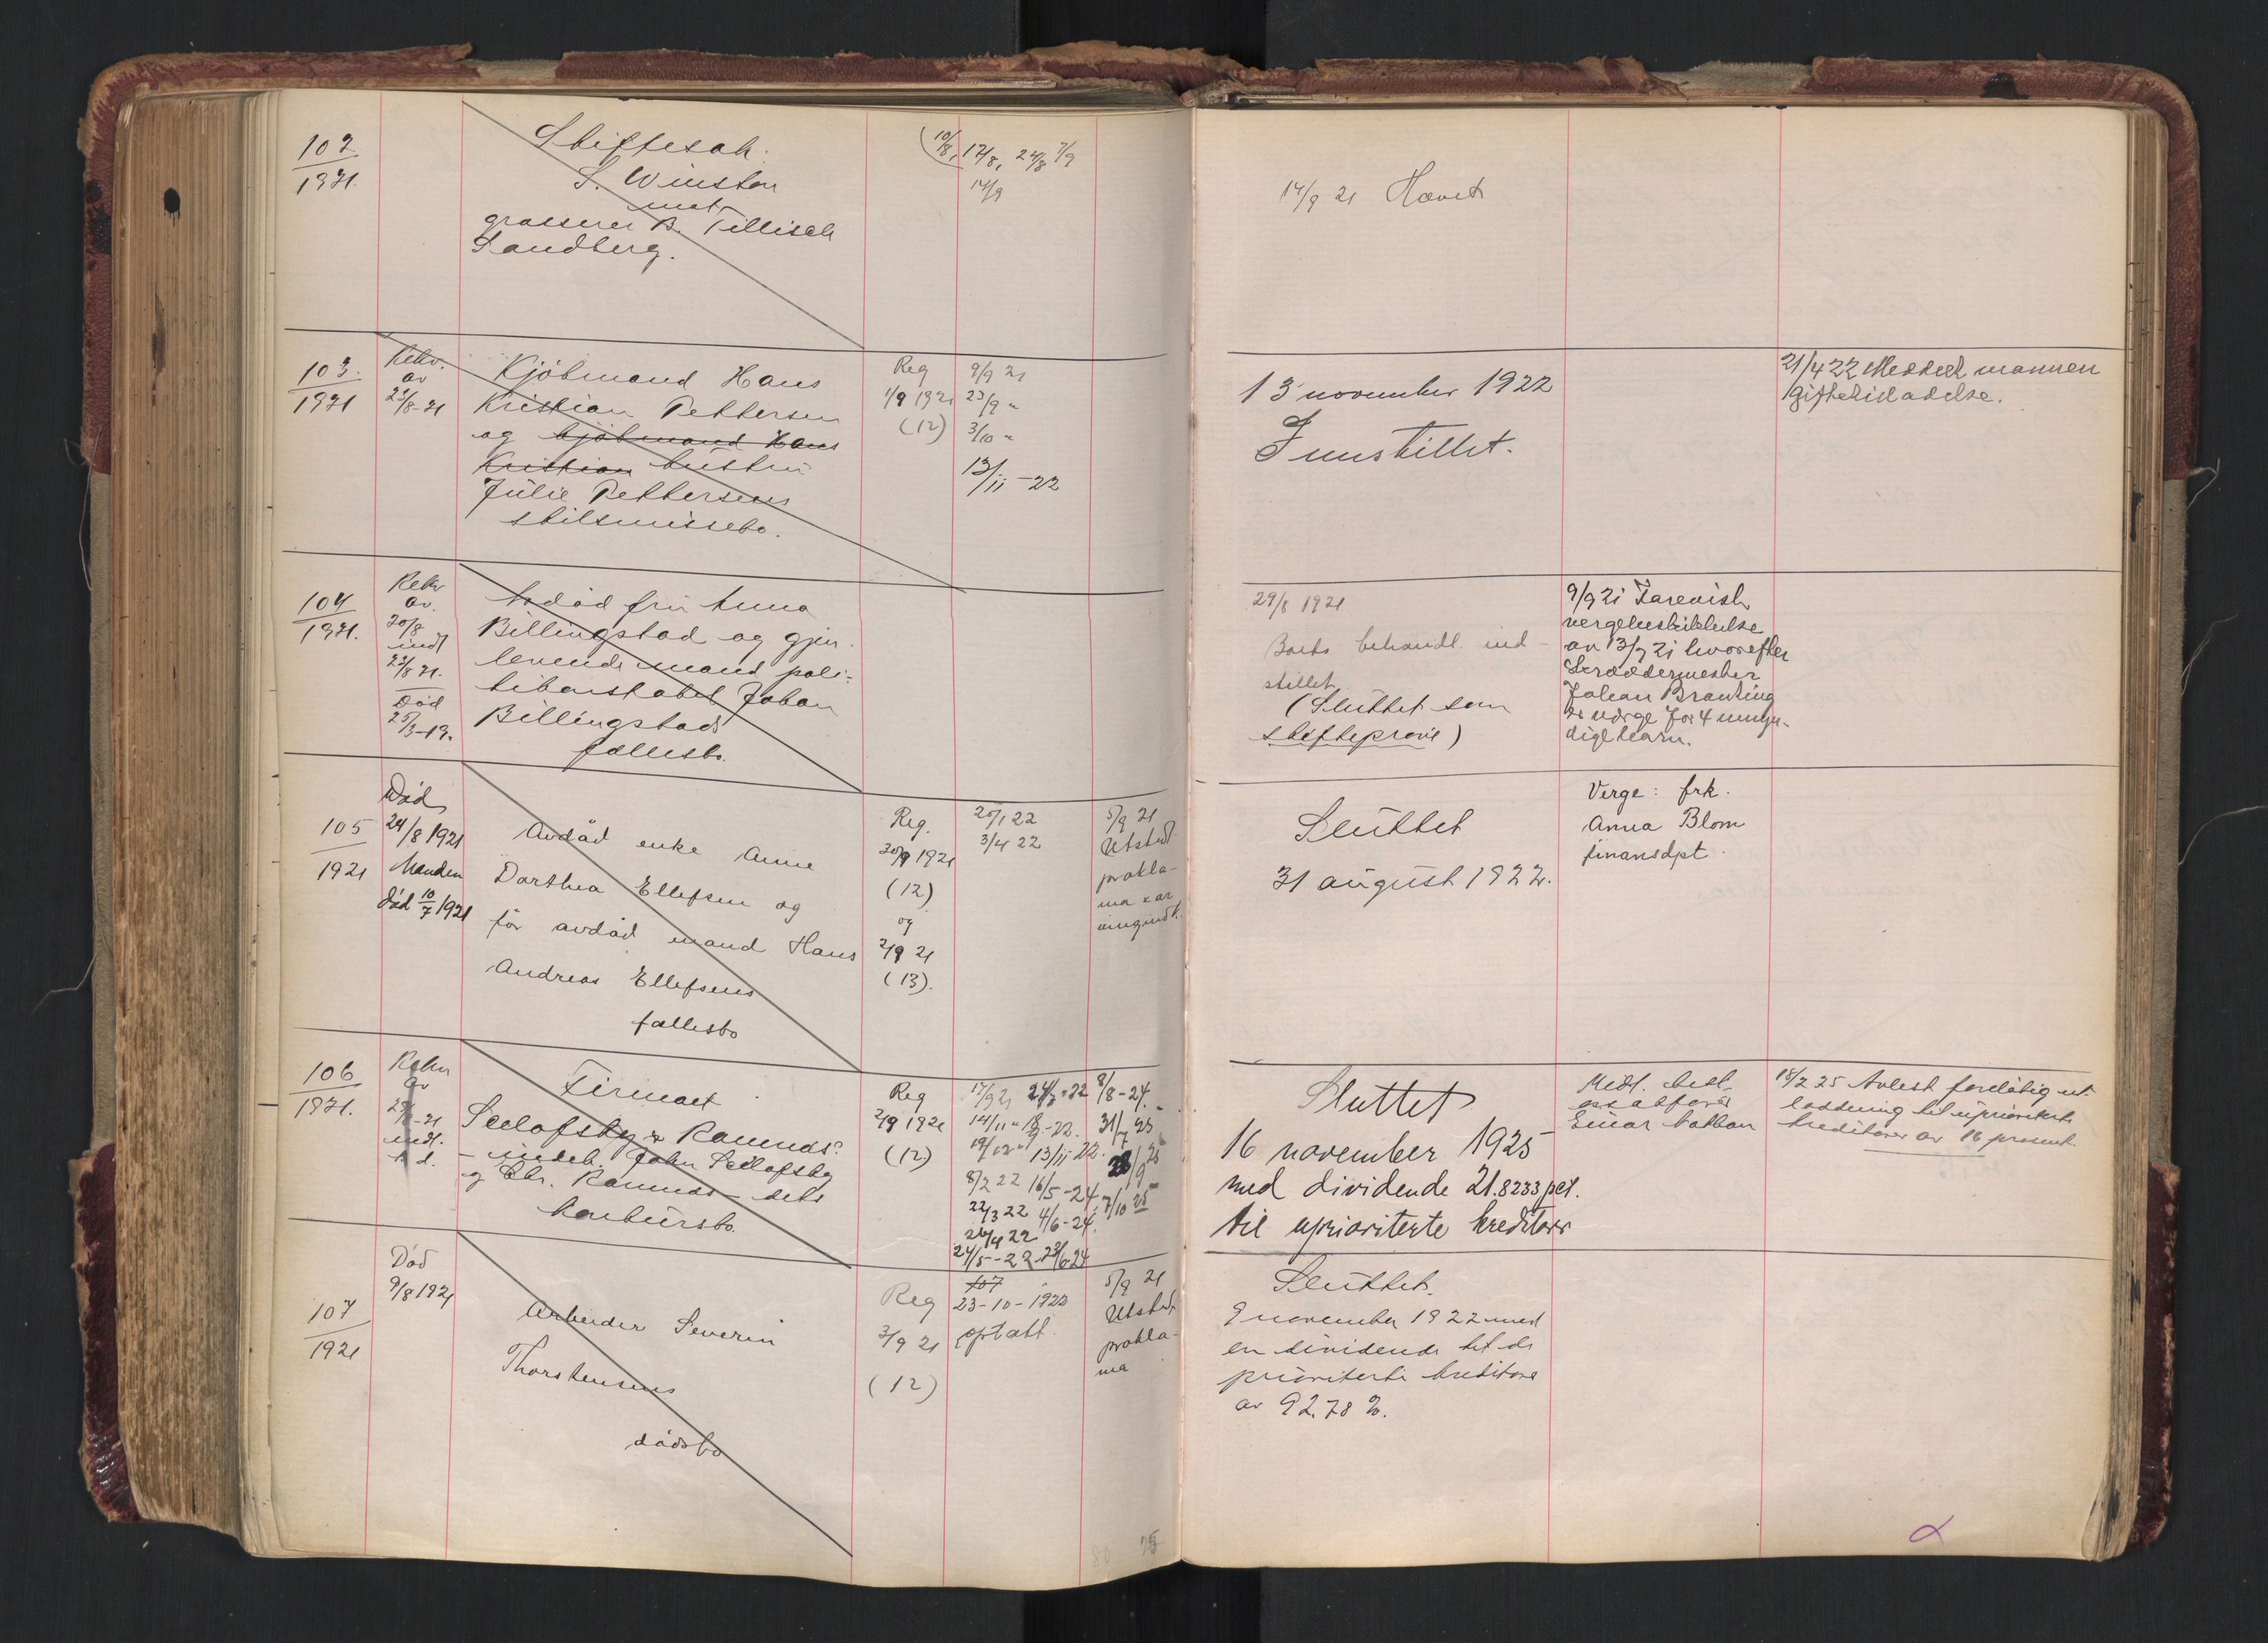 102
1921.
Skiftesak.
S. Winston
mot
grosserer B. Tillisch
Sandberg.
10/8, 17/8, 24/8 7/9
14/9
14/9 21 Hævet
103.
1921
Rekv.
av
23/8-21
Kjöbmand Hans
Kristian Pettersen
og kjöbmand Hans
Kristian hustru
Julie Pettersens
skilsmissebo.
Reg
1/9 1921
(12)
9/9 21
23/9 "
3/10 "
13/11-22
13 november 1922
Innstillet.
21/4 22 Meddelt mannen
giftetilladelse.
104
1921.
Rekv
av.
20/8
indk
23/8 21.
Död
25/3-19.
Avdöd fru Anna
Billingstad og gjen-
levende mand poli-
tikonstabel Johan
Billingstads
fællesbo.
29/8 1921
Boets behandl. ind-
stillet
(Sluttet som
skifteprove)
9/9 21 Forevist
vergebeskikkelse
av 13/9 21 hvorefter
Skræddermester
Johan Branting
er værge for 4 umyn-
dige barn.
105
1921
Död
24/8 1921
Manden
död 10/7 1921
Avdöd enke Anne
Dorthea Ellefsen og
før avdöd mand Hans
Andreas Ellefsens
fællesbo
Reg.
30/8 1921
(12)
og
2/9 21
(13).
20/1 22
3/4 22
5/9 21
Utstedt
prokla-
ma x ar
Sluttet
31 august 1922.
Verge: frk.
Anna Blom
finansdpt.
106
1921.
Rekv
av
29/8-21
indk.
s. d.
Firmaet
- indeh. John Sellofsky
og Chr. Ramnds - dets
konkursbo.
Reg
2/9 1921
(12)
17/9 21 24/8-22 8/8-24.
13/11 22.
8/2 22 16/5-24 7/10 25
22/3 22 4/6-24.
26/4 22
24/5-22
Sluttet
16 november 1925
med dividende 21.8233 pct.
til uprioriterte kreditorer
Einar Nathan
18/2 25 Avlest foreløbig ut-
lodning til uprioriterte
kreditorer av 16 prosent
107
1921
Död
9/8 1921
Arbeider Severin
Thorstensens
dödsbo
Reg
3/9 21
(12)
107
23-10-1922
optatt.
5/9 21
Utstedt
prokla-
ma
Sluttet.
9 november 1922 med
en dividende til de
prioriterte kreditore
av 92.78 %.
75